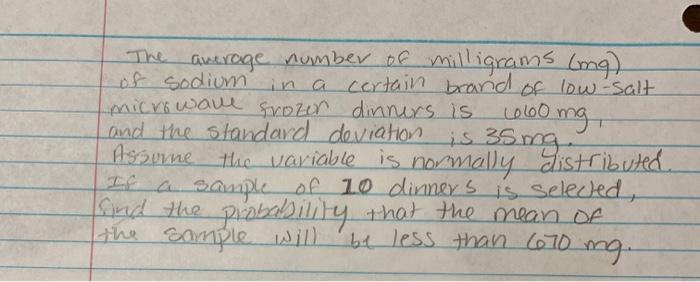 The average number of milligrams (mg)
of sodium in a certain brand of low-salt
microwave frozen dinners is 660 mg,
and the standard deviation is 35 mg.
Assume the variable is normally distributed.
If a sample of 10 dinners is selected,
find the probability that the mean of
the sample will be less than 670 mg.